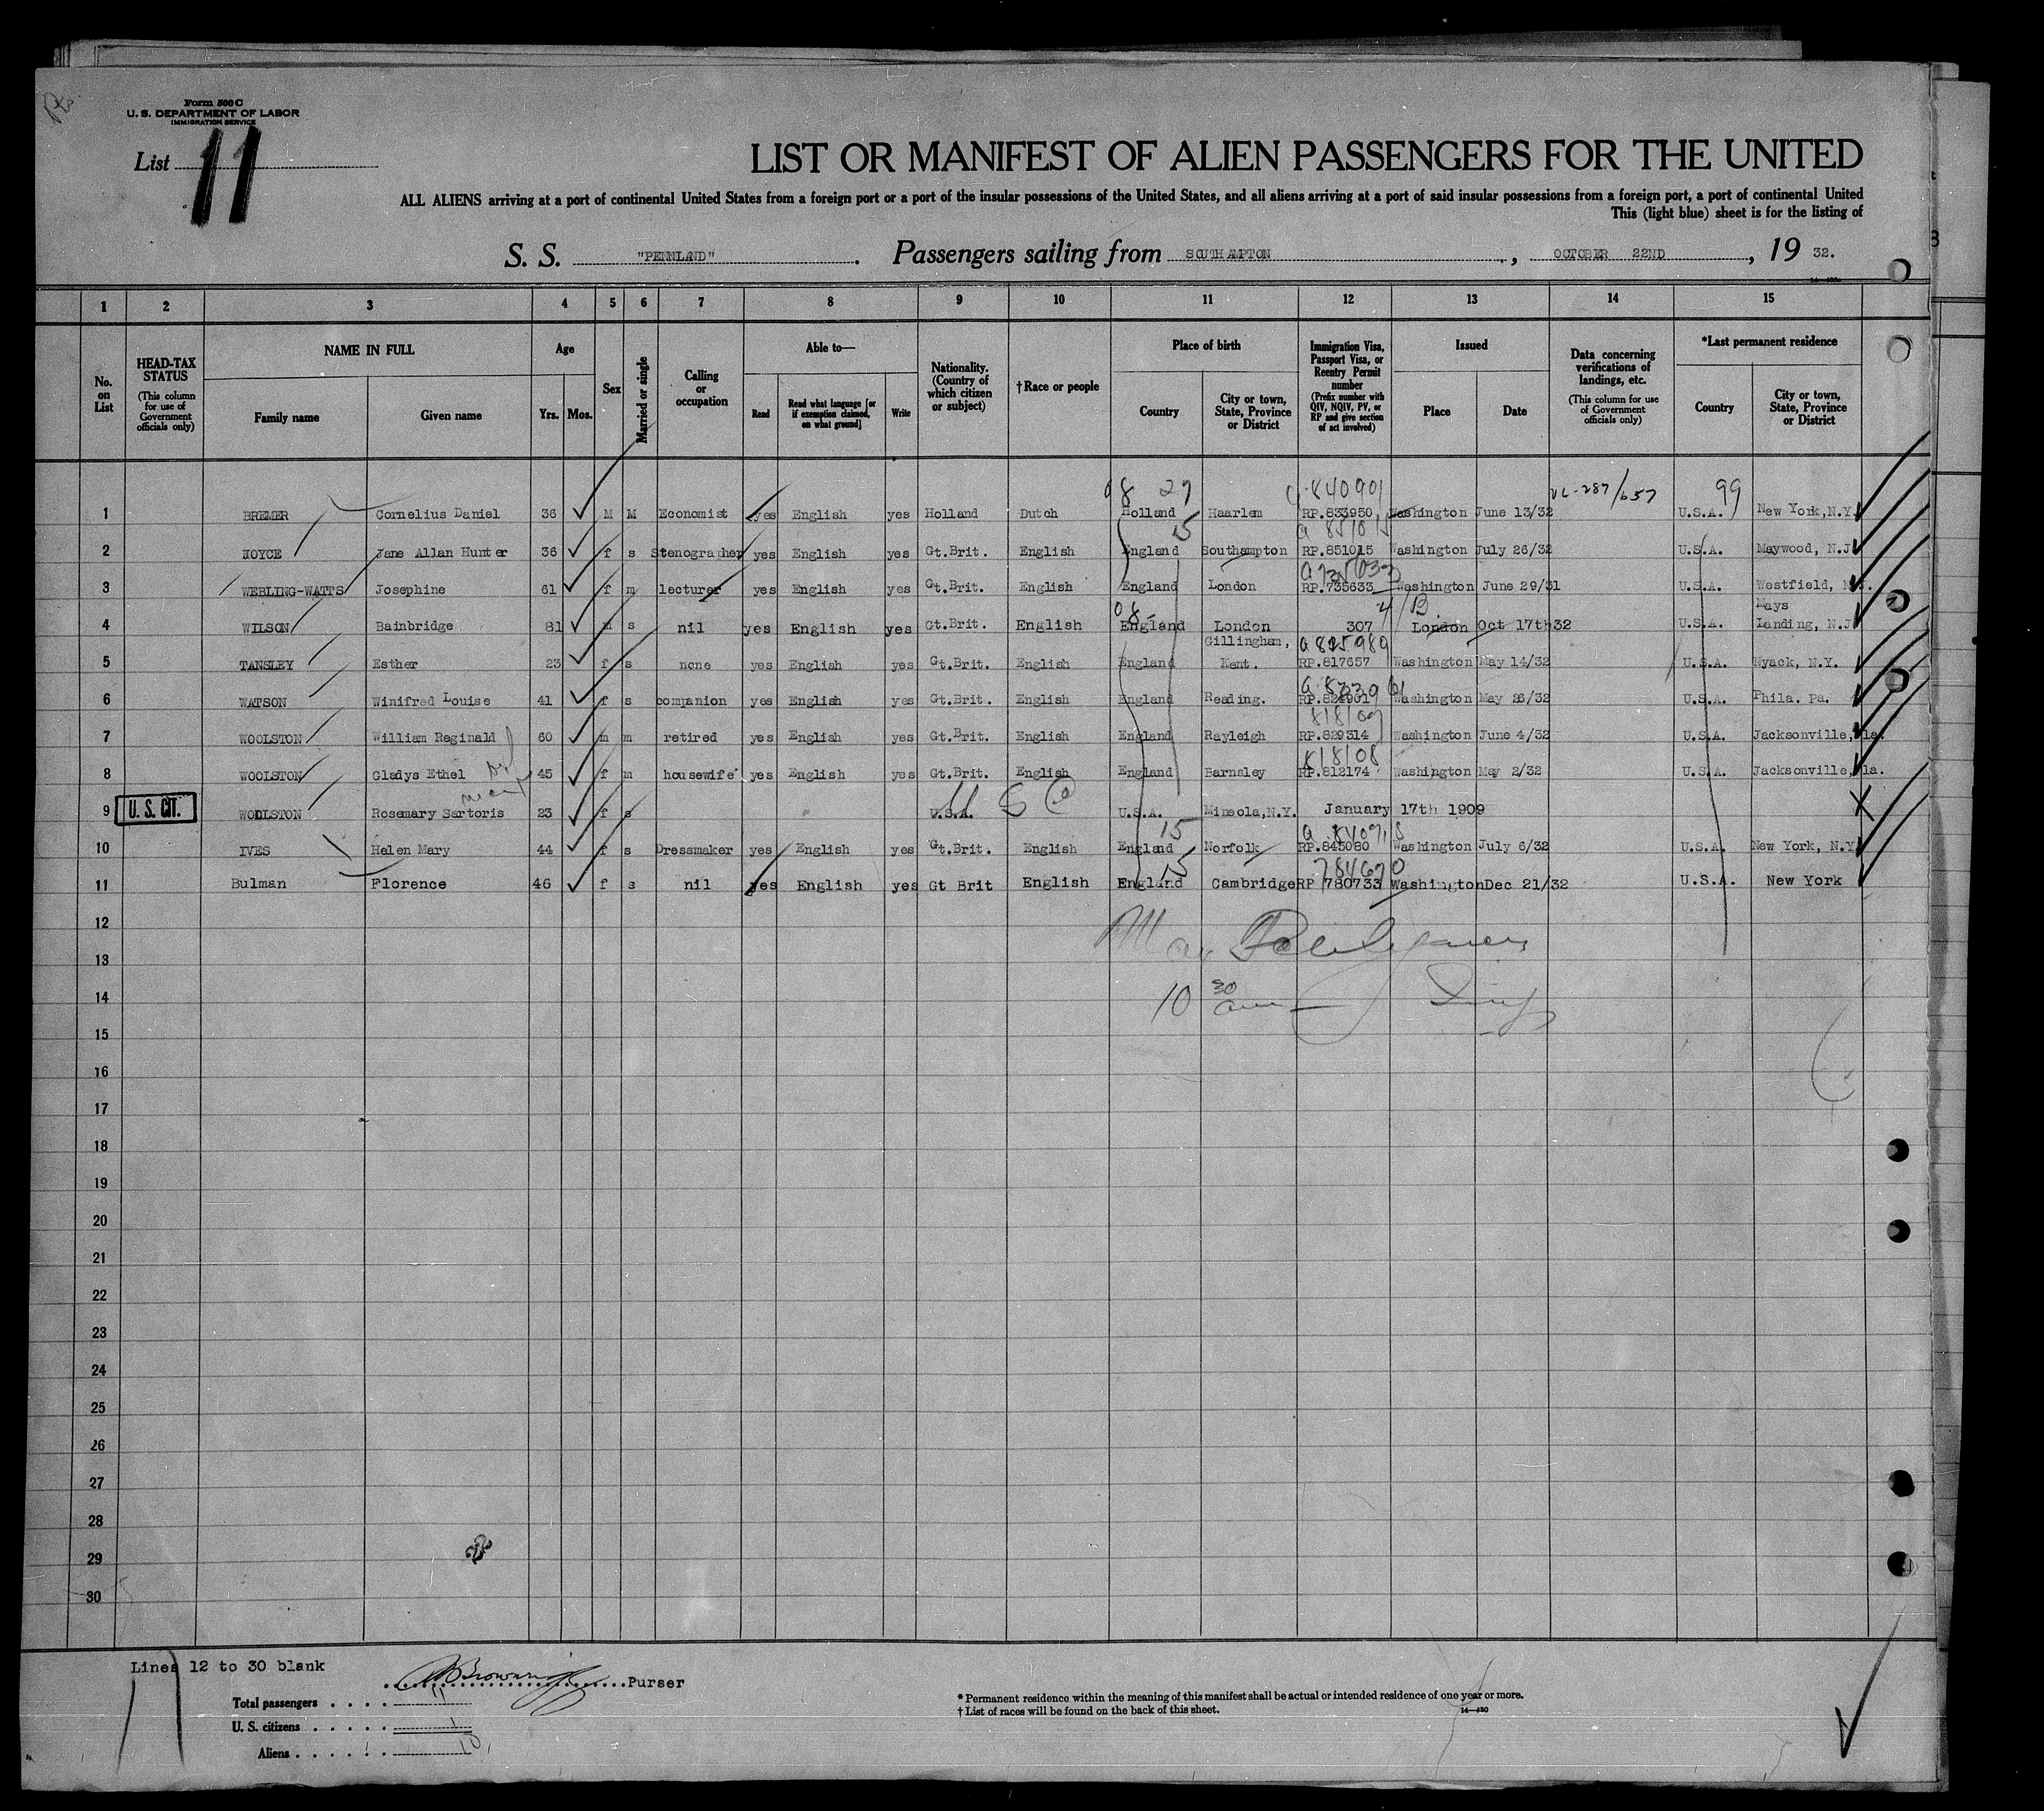 Form 500 C
U. S. DEPARTMENT OF LABOR
IMMIGRATION SERVICE
List 11
LIST OR MANIFEST OF ALIEN PASSENGERS FOR THE UNITED
ALL ALIENS arriving at a port of continental United States from a foreign port or a port of the insular possessions of the United States, and all aliens arriving at a port of said insular possessions from a foreign port, a port of continental United
This (light blue) sheet is for the listing of
S. S. "PENNLAND". Passengers sailing from SOUTHAMPTON, OCTOBER 22ND, 19 32.
1 2 3 4 5 6 7 8 9 10 11 12 13 14 15
No. on List
HEAD-TAX STATUS
(This column for use of Government officials only)
NAME IN FULL
Family name
Given name
Age
Yrs.
Mos.
Sex
Married or single
Calling or occupation
Able to—
Read
Read what language [or if exemption claimed, on what ground]
Write
Nationality. (Country of which citizen or subject)
† Race or people
Place of birth
Country
City or town, State, Province or District
Immigration Visa, Passport Visa, or Reentry Permit number
(Prefix number with QIV, NQIV, PV, or RP and give section of act involved)
Issued
Place
Date
Data concerning verifications of landings, etc.
(This column for use of Government officials only)
*Last permanent residence
Country
City or town, State, Province or District
98 27 840901 99
1 BREMER Cornelius Daniel 36 M M Economist yes English yes Holland Dutch Holland Haarlem RP.833950 Washington June 13/32 U.S.A. New York, N.Y.
15 a 851015
2 JOYCE Jane Allan Hunter 36 f s Stenographer yes English yes Gt.Brit. English England Southampton RP.851015 Washington July 26/32 U.S.A. Maywood, N.J.
3 WEBLING-WATTS Josephine 61 f m lecturer yes English yes Gt.Brit. English England London RP.735633 Washington June 29/31 U.S.A. Westfield, N.J.
4 WILSON Bainbridge 81 m s nil yes English yes Gt.Brit. English England London 307 London Oct 17th 32 U.S.A. Mays Landing, N.J.
a 825989
5 TANSLEY Esther 23 f s none yes English yes Gt.Brit. English England Gillingham, Kent. RP.817657 Washington May 14/32 U.S.A. Nyack, N.Y.
6 WATSON Winifred Louise 41 f s companion yes English yes Gt.Brit. English England Reading. RP.824901 Washington May 26/32 U.S.A. Phila. Pa.
818109
7 WOOLSTON William Reginald 60 m m retired yes English yes Gt.Brit. English England Rayleigh RP.829314 Washington June 4/32 U.S.A. Jacksonville, Fla.
818108
8 WOOLSTON Gladys Ethel 45 f m housewife yes English yes Gt.Brit. English England Barnsley RP.812174 Washington May 2/32 U.S.A. Jacksonville, Fla.
9 U. S. CIT. WOOLSTON Rosemary Sartoris 23 f s U.S.A. U S C U.S.A. Mineola, N.Y. January 17th 1909
15 a 840918
10 IVES Helen Mary 44 f s Dressmaker yes English yes Gt.Brit. English England Norfolk RP.845080 Washington July 6/32 U.S.A. New York, N.Y.
15 784670
11 Bulman Florence 46 f s nil yes English yes Gt Brit English England Cambridge RP 780733 Washington Dec 21/32 U.S.A. New York
12
13
14 10 30 am
15
16
17
18
19
20
21
22
23
24
25
26
27
28
29
30
Lines 12 to 30 blank
Purser
Total passengers . . . . 11
U. S. citizens . . . . . 1
Aliens . . . . . . 10
* Permanent residence within the meaning of this manifest shall be actual or intended residence of one year or more.
† List of races will be found on the back of this sheet.
14—430